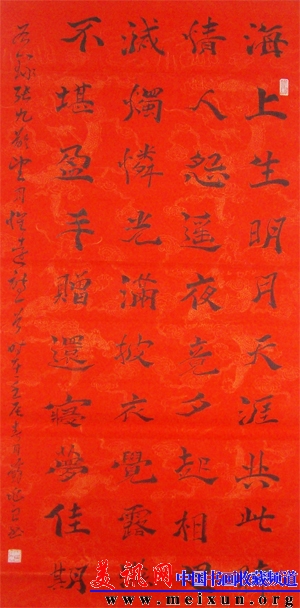 海上生明月天涯共此時
情人怨遥夜竟夕起相
滅燭憐光滿披衣覺露
不堪盈手贈還寢夢佳期
張九齡望月懷遠詩一首
美讯网 中国书画收藏频道
www.meixun.org